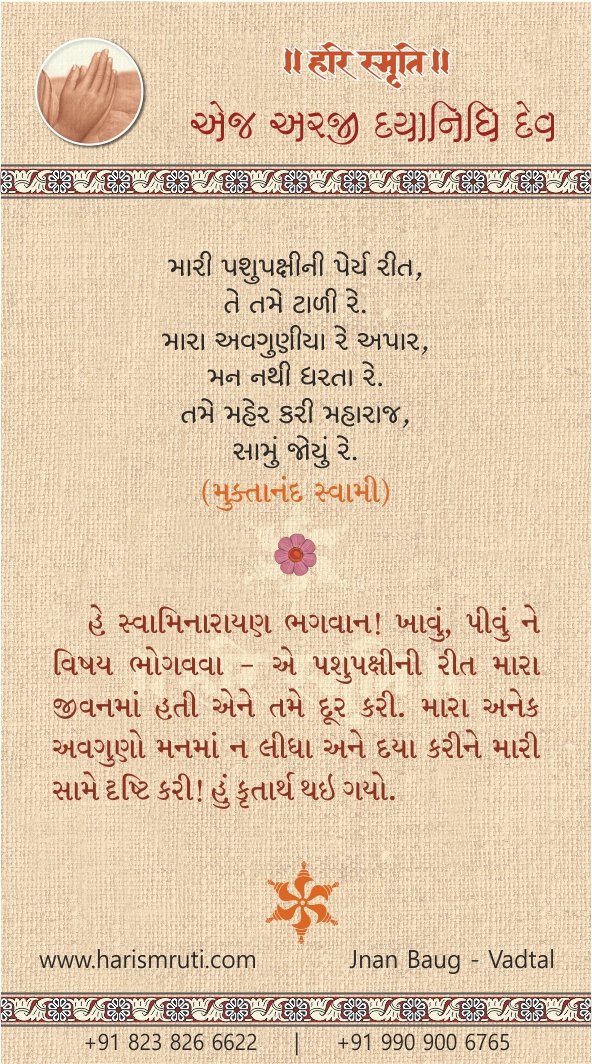 ॥ હરિ સ્મૃતિ ॥
એજ અરજી દયાનિધિ દેવ
મારી પશુપક્ષીની પેર્ય રીત,
તે તમે ટાળી રે.
મારા અવગુણીયા રે અપાર,
મન નથી ધરતા રે.
તમે મહેર કરી મહારાજ,
સામું જોયું રે.
(મુક્તાનંદ સ્વામી)
હે સ્વામિનારાયણ ભગવાન! ખાવું, પીવું ને
વિષય ભોગવવા – એ પશુપક્ષીની રીત મારા
જીવનમાં હતી એને તમે દૂર કરી. મારા અનેક
અવગુણો મનમાં ન લીધા અને દયા કરીને મારી
સામે દષ્ટિ કરી! હું કૃતાર્થ થઇ ગયો.
www.harismruti.com Jnan Baug - Vadtal
+91 823 826 6622 | +91 990 900 6765